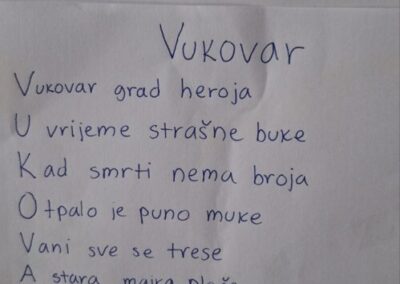 Vukovar
Vukovar grad heroja
U vrijeme strašne buke
Kad smrti nema broja
Otpalo je puno muke
Vani sve se trese
A stara majka